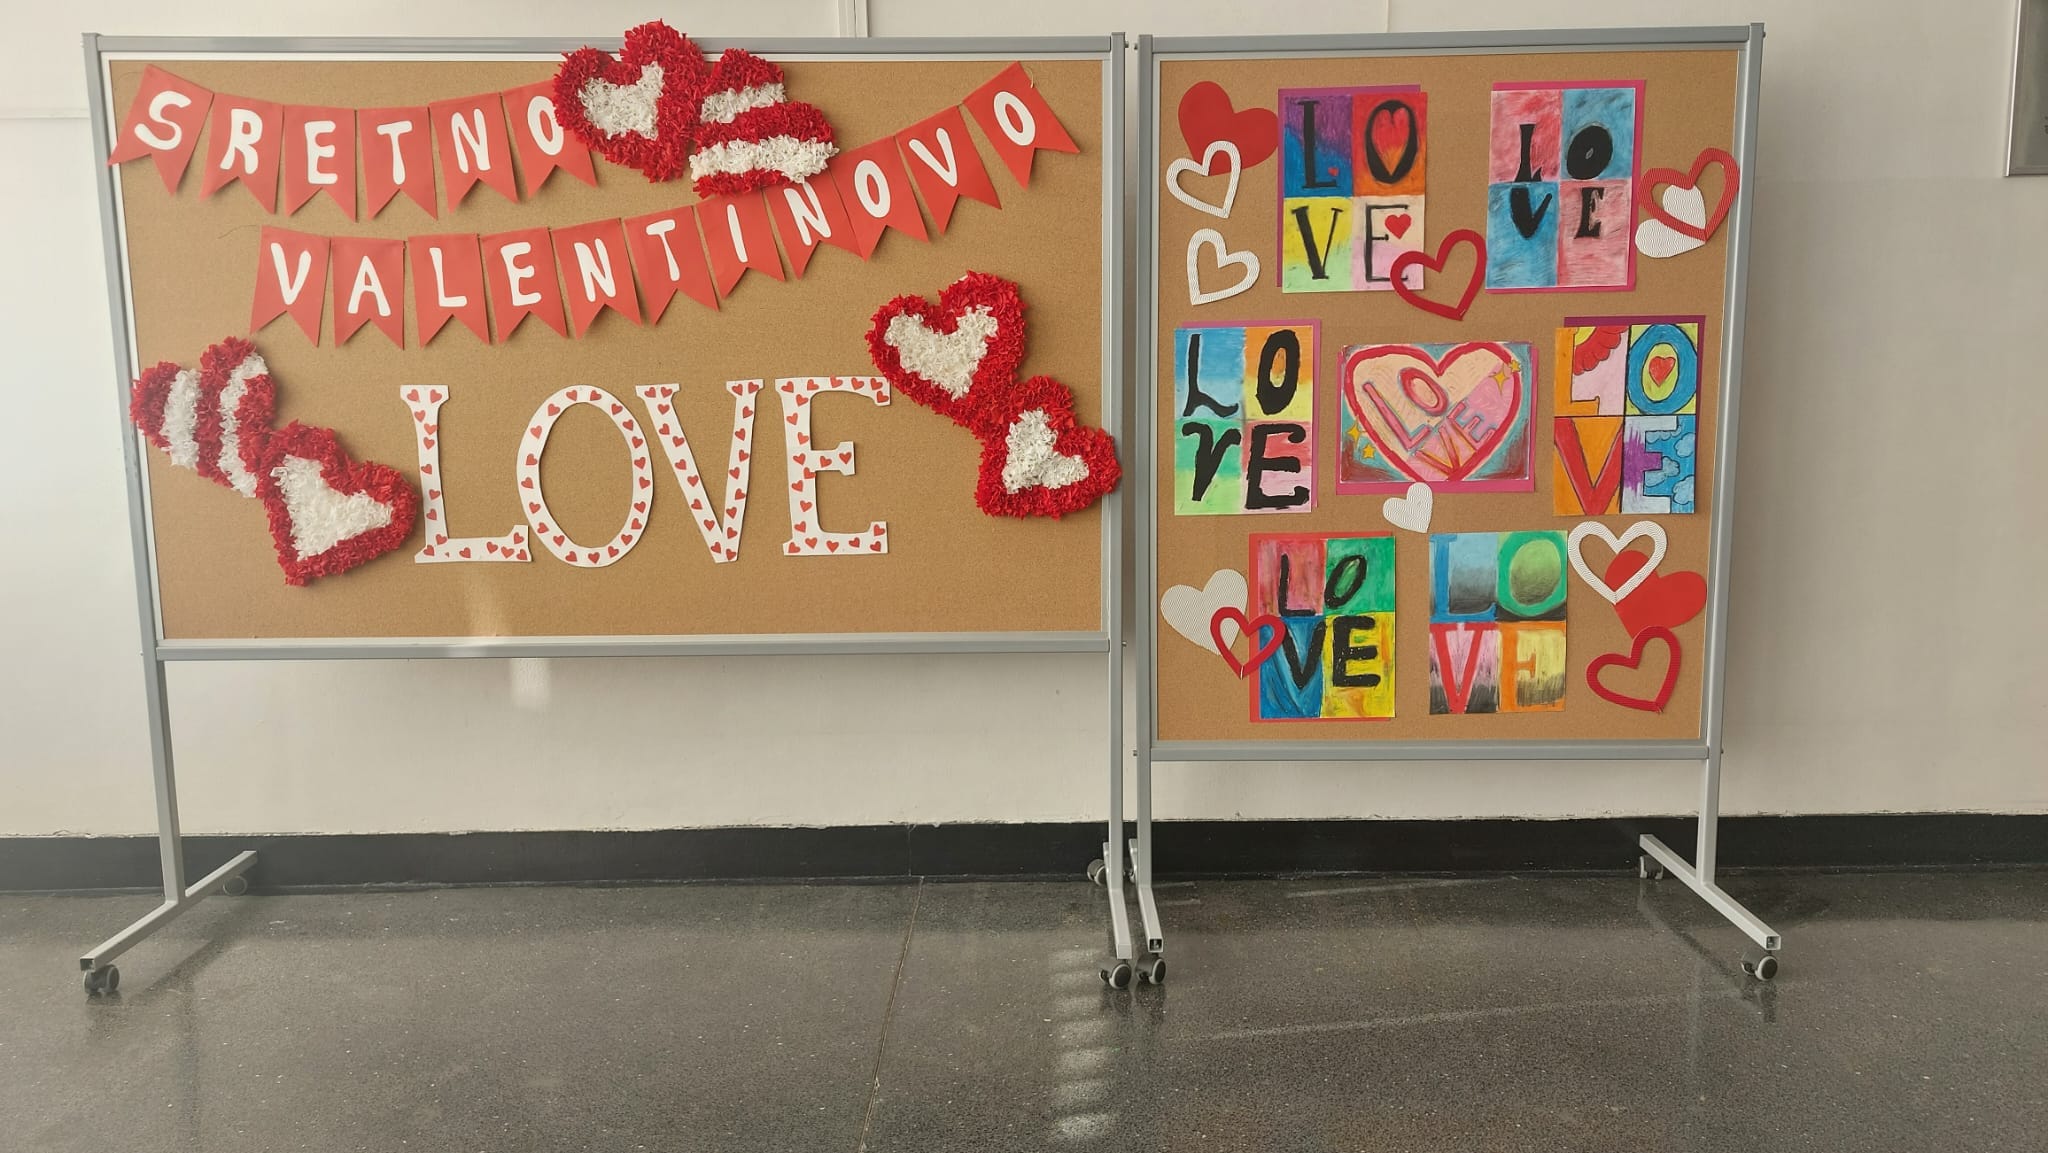 SRETNO
VALENTINOVO
LOVE
LO
VE
LO
VE
LO
VE
LO
VE
LO
VE
LO
VE
LO
VE